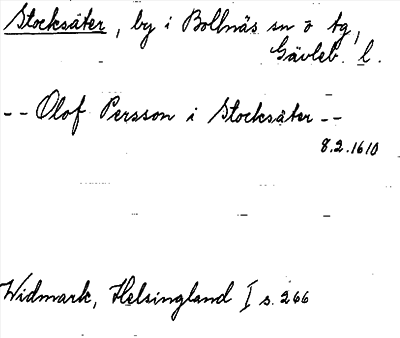 Stocksäter, by i Bollnäs sn o tg,
Gävleb. l.
-- Olof Persson i Stocksäter --
8.2.1610
Widmark, Helsingland I s. 266